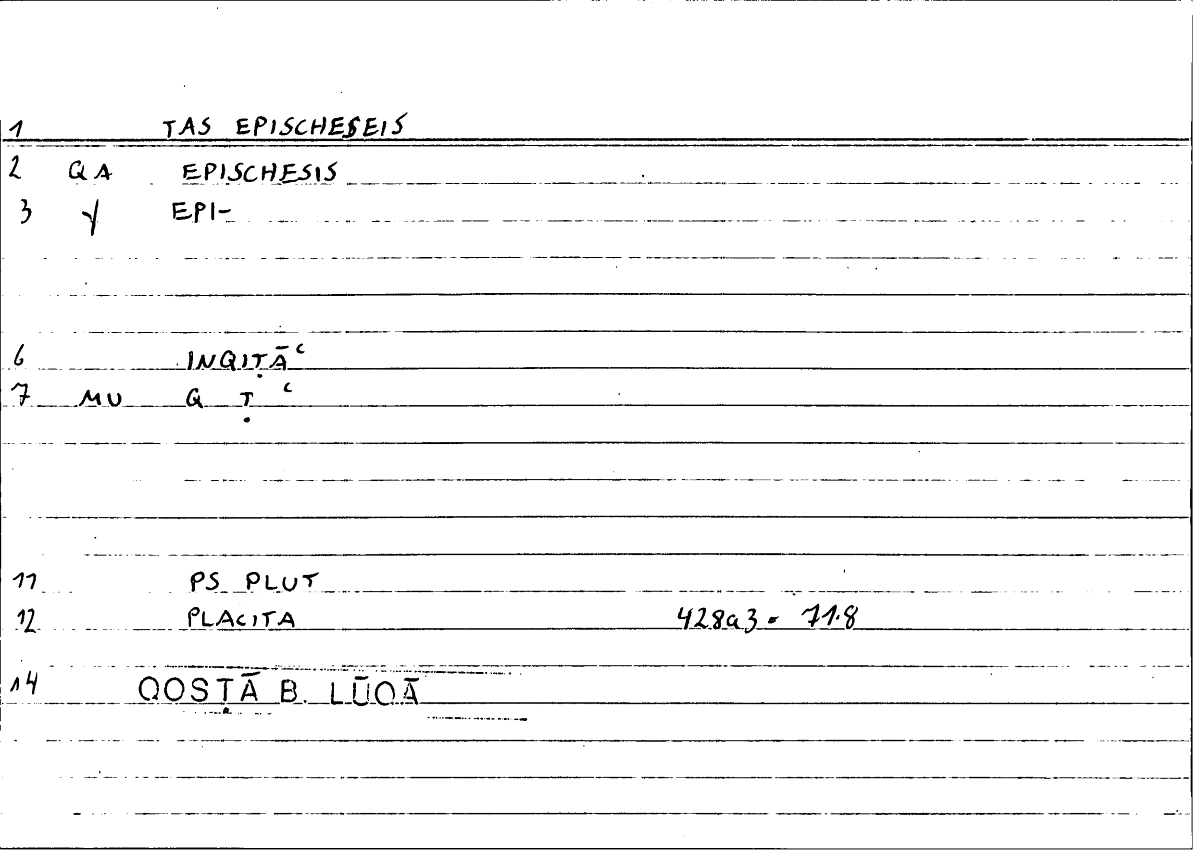 1 TAS EPISCHESEIS
2 QA EPISCHESIS
3 Y EPI-
6 INQIṬĀʿ
7 MU Q Ṭ ʿ
11 PS PLUT
12 PLACITA 428a3 = 71.8
14 QOSṬĀ B. LŪQĀ